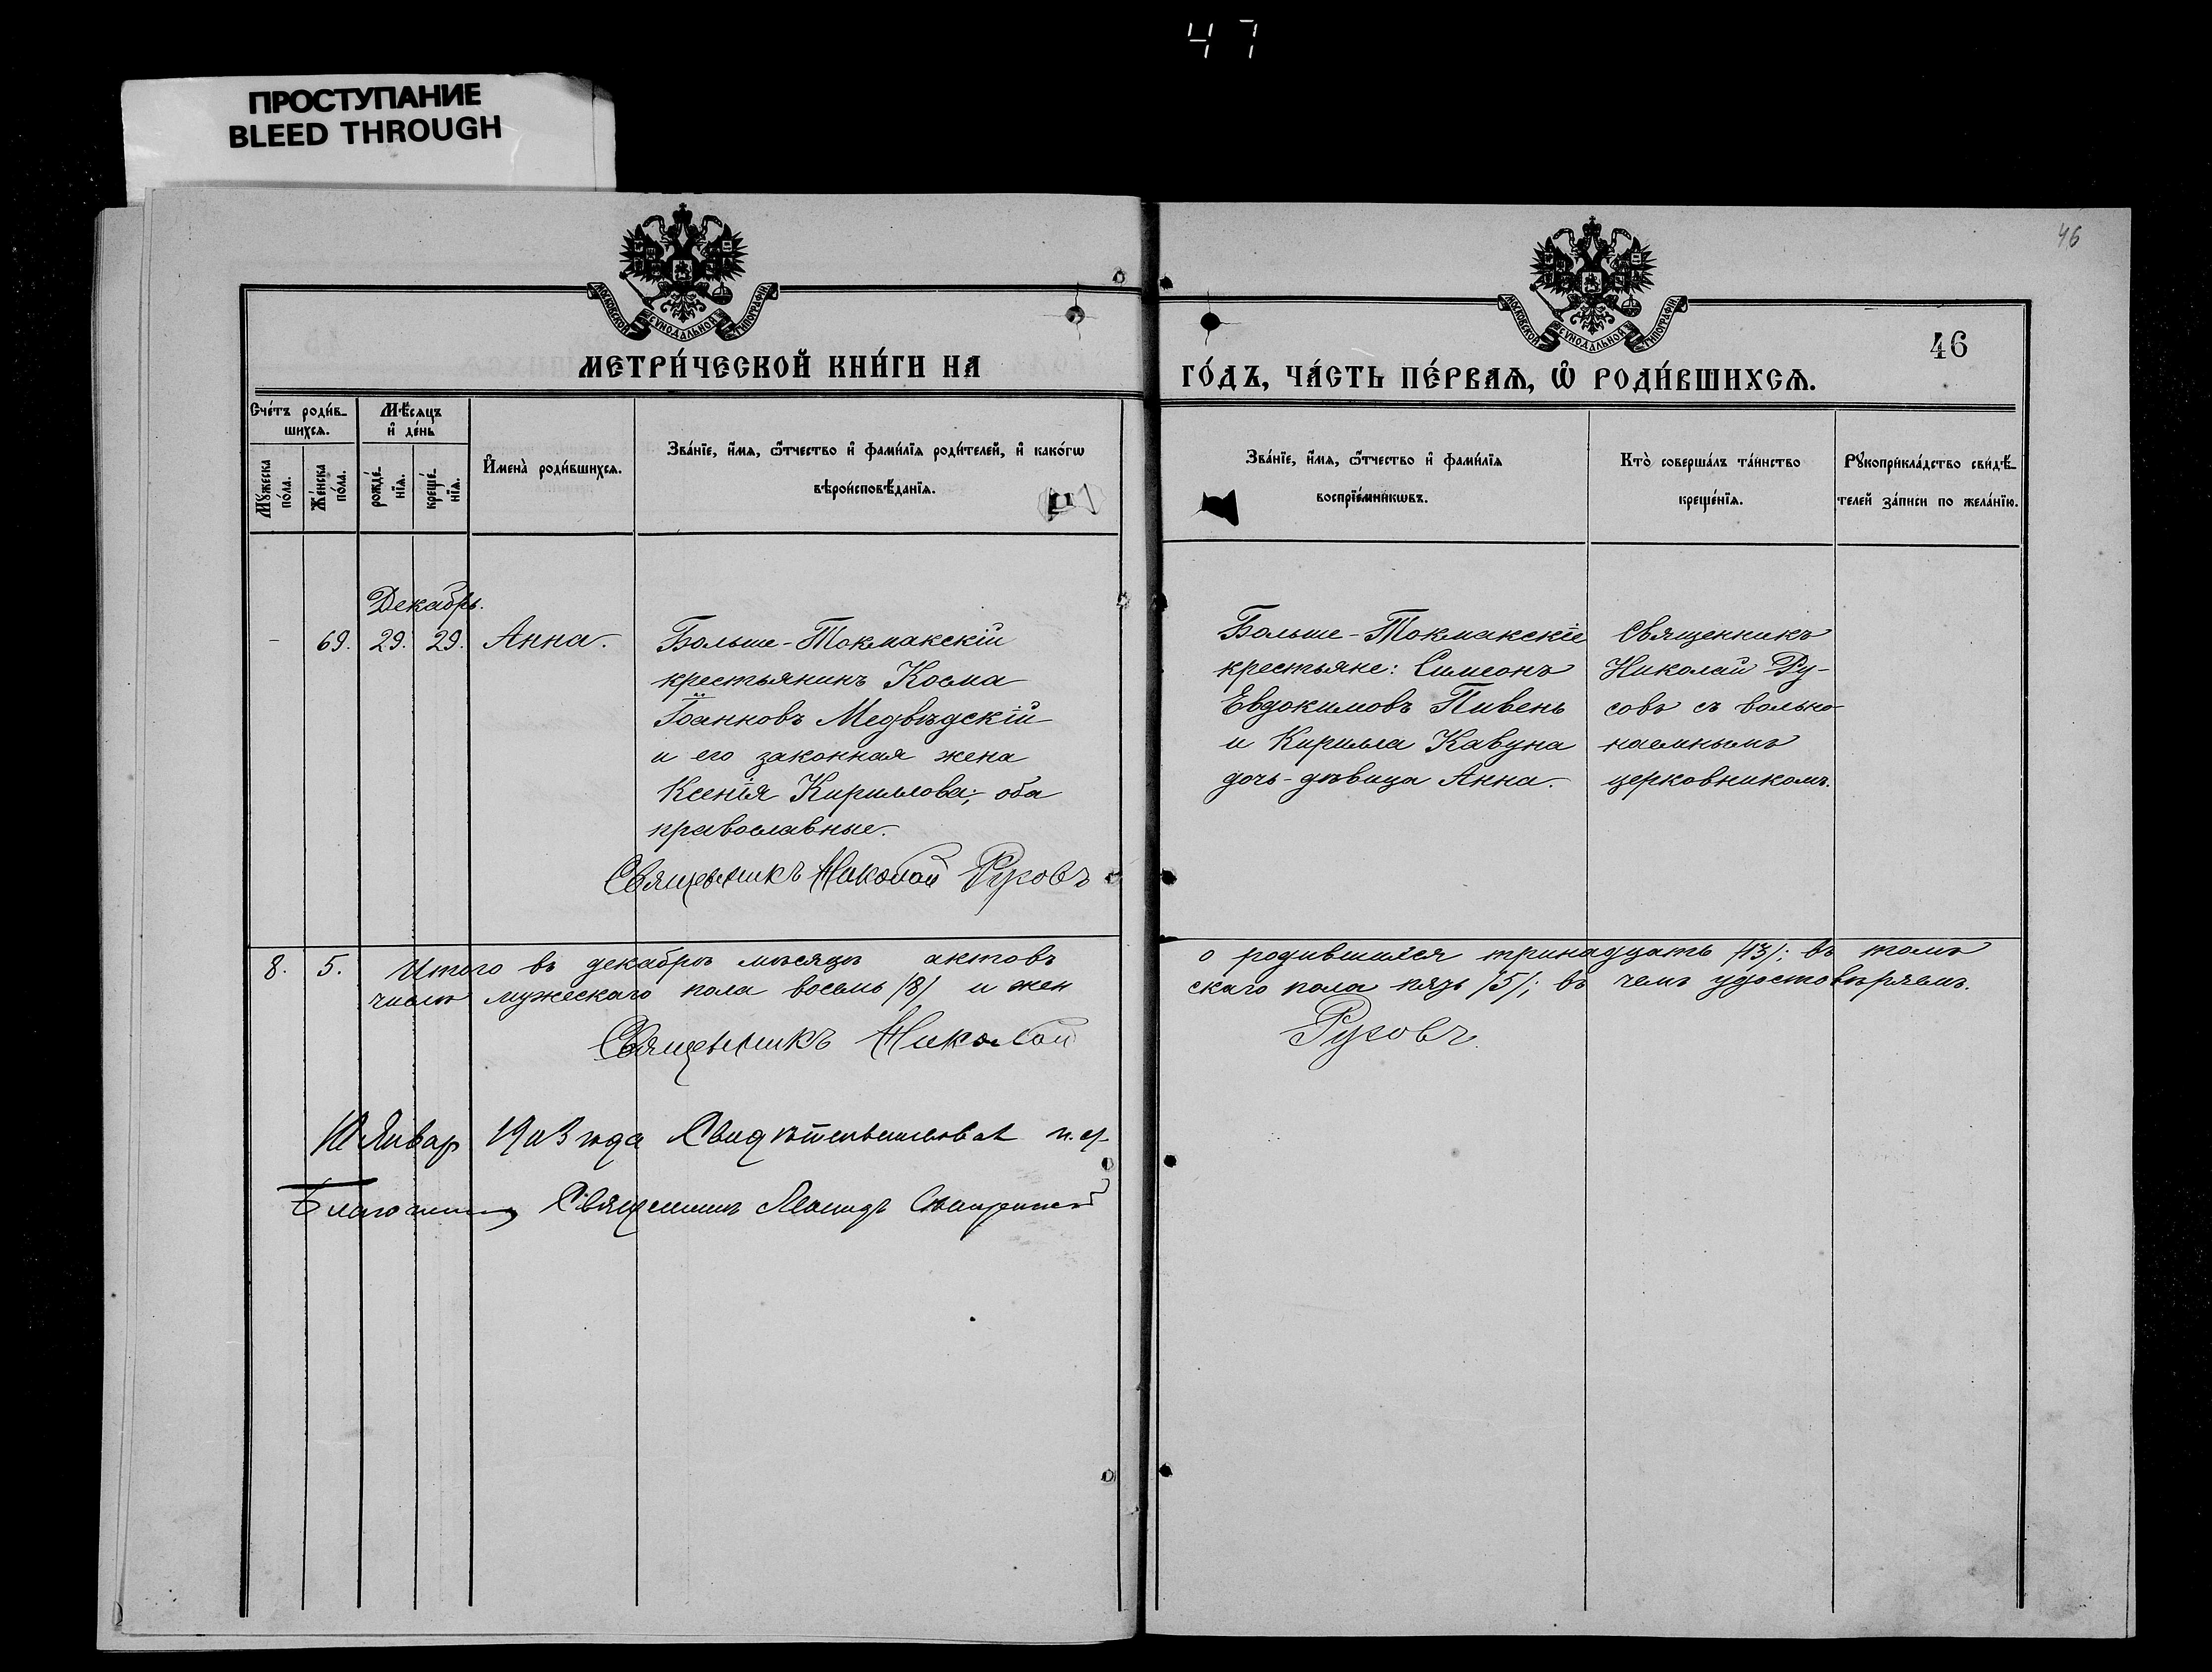 47
ПРОСТУПАНИЕ
BLEED THROUGH
46
МОСКОВСКОЙ СѴНОДАЛЬНОЙ ТИПОГРАФІИ
МОСКОВСКОЙ СѴНОДАЛЬНОЙ ТИПОГРАФІИ
46
МЕТРИ́ЧЕСКОЙ КНИ́ГИ НА
ГО́ДЪ, ЧА́СТЬ ПЕ́РВАѦ, Ѽ РОДИ́ВШИХСѦ.
Сче́тъ роди́в-
шихсѧ.
Мѣ́сѧцъ
и҆ де́нь
Мꙋ́жеска
по́ла.
Же́нска
по́ла.
рожде́-
нїѧ.
креще́-
нїѧ.
И҆мена̀ роди́вшихсѧ.
Зва́нїе, и҆́мѧ, ѻ҆́тчество и҆ фами́лїѧ роди́телей, и҆ како́гѡ
вѣроисповѣ́данїѧ.
Зва́нїе, и҆́мѧ, ѻ҆́тчество и҆ фами́лїѧ
воспрїе́мникѡвъ.
Кто̀ соверша́лъ та́инство
креще́нїѧ.
Рꙋкоприкла́дство свидѣ́-
телей за́писи по жела́нїю.
Декабрь.
- 69. 29. 29. Анна.
Больше-Токмакскій
крестьянинъ Косма
Іоанновъ Медвѣдскій
и его законная жена
Ксенія Кириллова; оба
православные.
Священникъ Николай Русовъ
Больше-Токмакскіе
крестьяне: Симеонъ
Евдокимовъ Пивень
и Кирилла Кавуна
дочь-дѣвица Анна.
Священникъ
Николай Ру-
совъ съ вольно-
наемнымъ
церковникомъ.
8. 5. Итого въ декабрѣ мѣсяцѣ актовъ о родившихся тринадцать /13/; въ томъ
числѣ мужескаго пола восемь /8/ и женскаго пола пять /5/; въ чемъ удостовѣряемъ.
Священникъ Николай Русовъ.
10 Январ 1903 года Свидѣтельствовал и. д.
Благочинн Священник Леонидъ